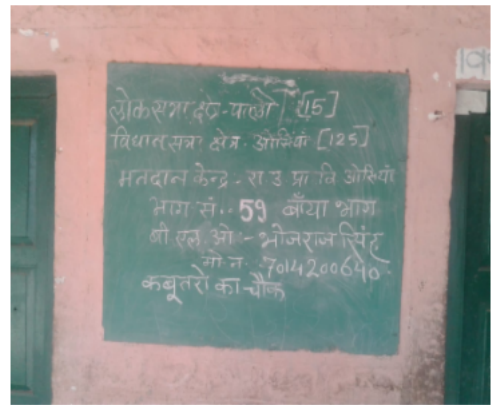 लोकसभा क्षेत्र-पाली [15]
विधानसभा क्षेत्र. ओसियाँ [125]
मतदान केन्द्र - रा उ प्रा वि ओसियां
भाग सं.. 59 बाँया भाग
बी एल ओ - भोजराज सिंह
मो न. 7014200640
कबूतरो का चौक